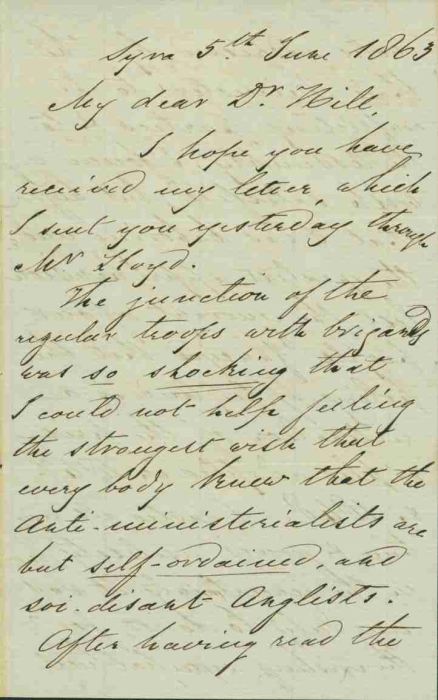 Syra 5th June 1863
My dear Dr Hill,
I hope you have
received my letter, which
I sent you yesterday through
Mr Lloyd.
The junction of the
regular troops with brigands
was so shocking that
I could not help feeling
the strongest wish that
every body knew that the
Anti-ministerialists are
but self-ordained, and
soi-disant Anglists.
After having read the